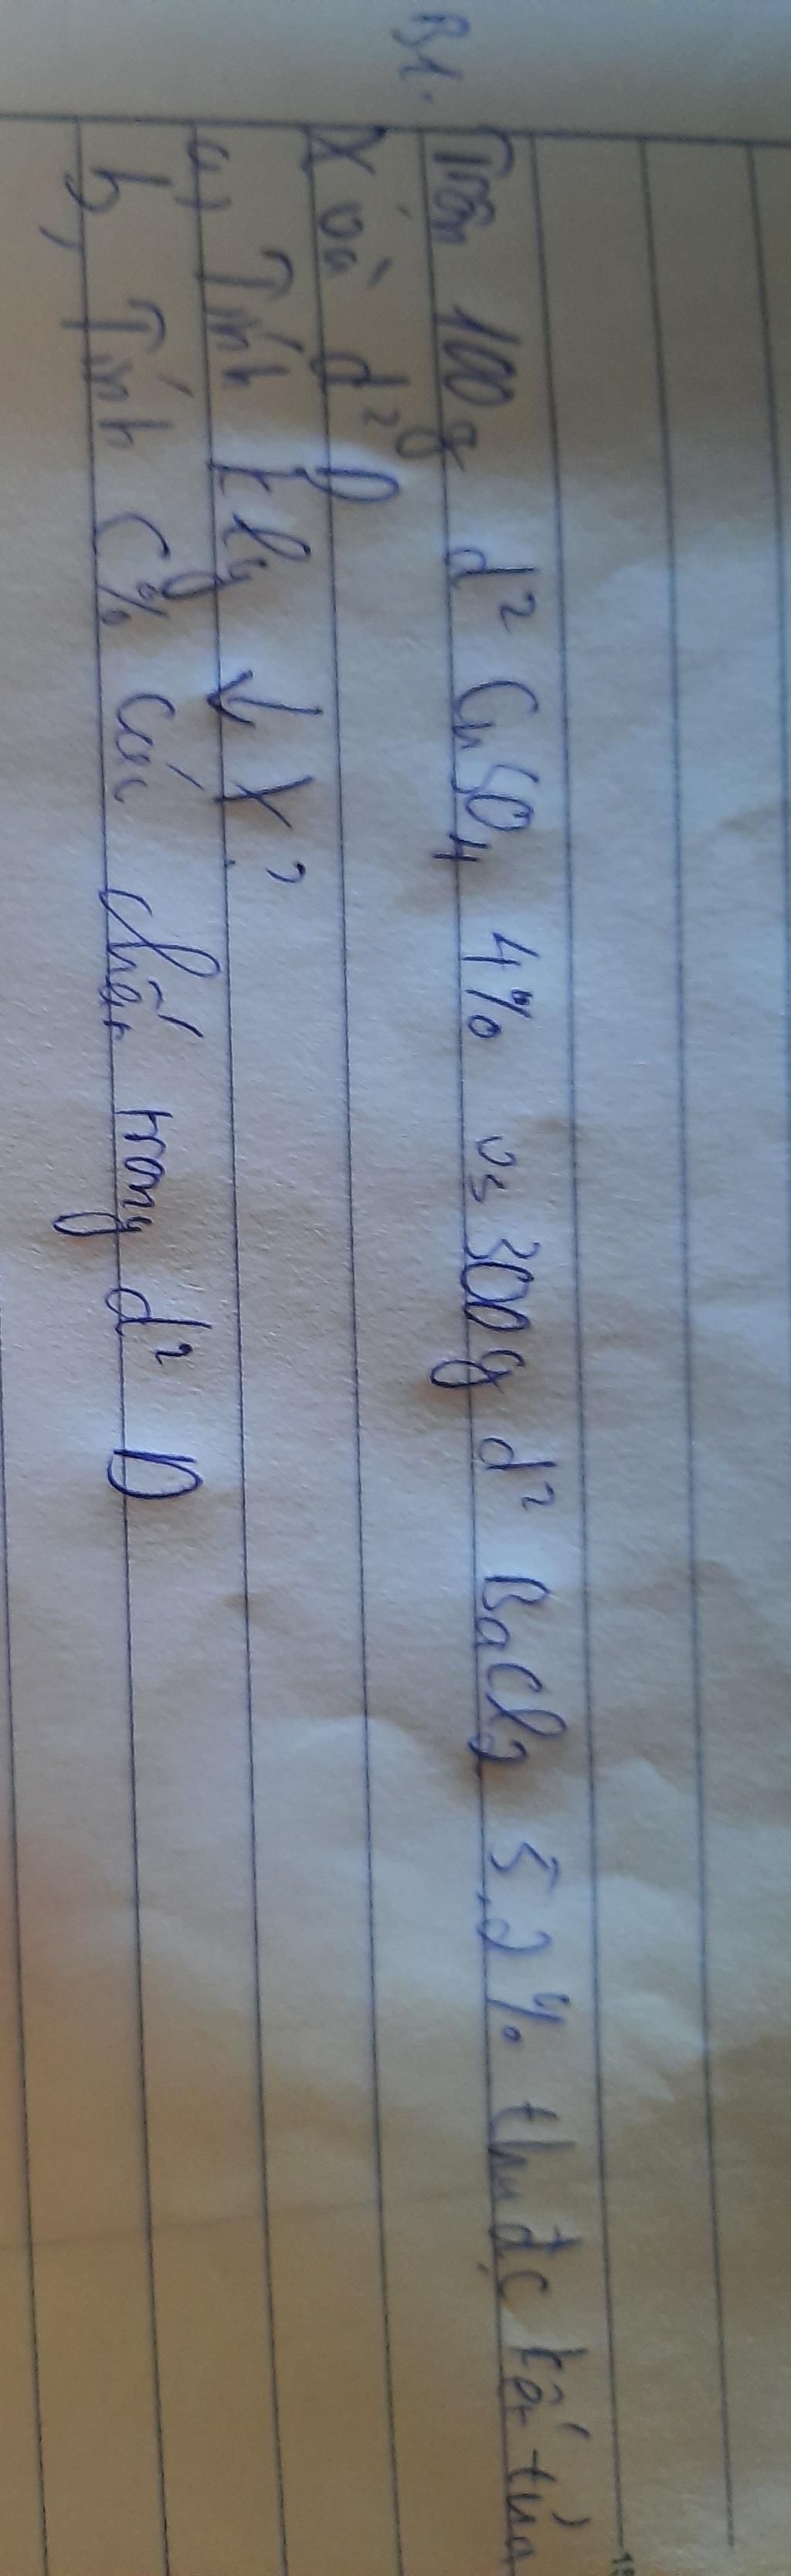 B1. Trộn 100g d² CuSO4 4% vs 300g d² BaCl2 5,2% thu đc kết tủa
X và d² D
a, Tính klg ↓ X?
b, Tính C% các chất trong d² D